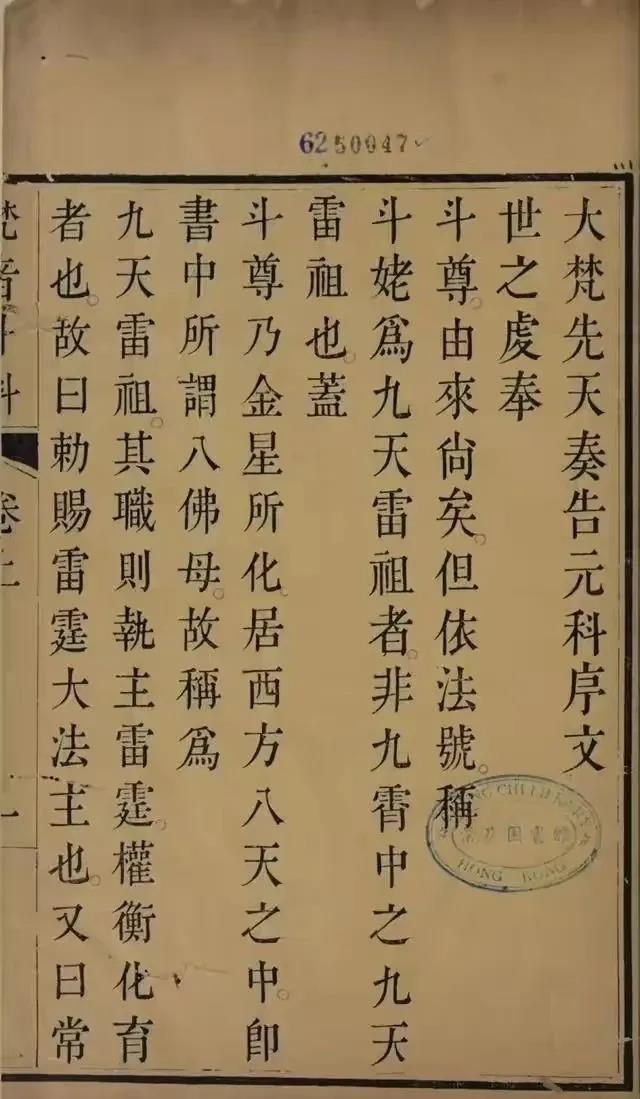 6250047
大梵先天奏告元科序文
世之虔奉
斗尊。由來尙矣。但依法號。稱
斗姥爲九天雷祖者。非九霄中之九天
雷祖也。蓋
斗尊乃金星所化。居西方八天之中。卽
書中所謂八佛母。故稱爲
九天雷祖。其職則執主雷霆。權衡化育
者也。故曰勅賜雷霆大法主也。又曰常
梵音斗科
卷上
一
HONG KONG